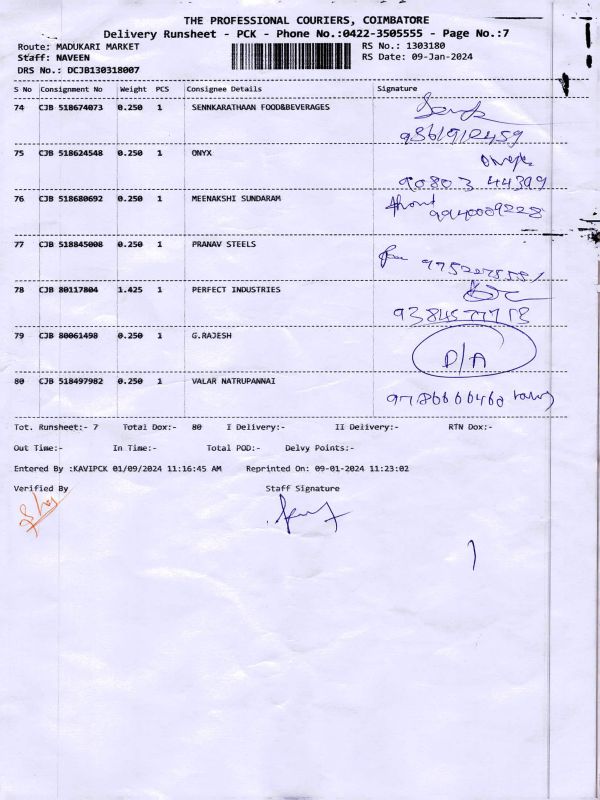 THE PROFESSIONAL COURIERS, COIMBATORE
Delivery Runsheet - PCK - Phone No.:0422-3505555 - Page No.:7
Route: MADUKARI MARKET RS No.: 1303180
Staff: NAVEEN RS Date: 09-Jan-2024
DRS No.: DCJB130318007
S No Consignment No Weight PCS Consignee Details Signature
74 CJB 518674073 0.250 1 SENNKARATHAAN FOOD&BEVERAGES
9361912459
75 CJB 518624548 0.250 1 ONYX
90803 44399
76 CJB 518680692 0.250 1 MEENAKSHI SUNDARAM
9940089228
77 CJB 518845008 0.250 1 PRANAV STEELS
78 CJB 80117804 1.425 1 PERFECT INDUSTRIES
9384577718
79 CJB 80061498 0.250 1 G.RAJESH
D/A
80 CJB 518497982 0.250 1 VALAR NATRUPANNAI
Tot. Runsheet:- 7 Total Dox:- 80 I Delivery:- II Delivery:- RTN Dox:-
Out Time:- In Time:- Total POD:- Delvy Points:-
Entered By :KAVIPCK 01/09/2024 11:16:45 AM Reprinted On: 09-01-2024 11:23:02
Verified By Staff Signature